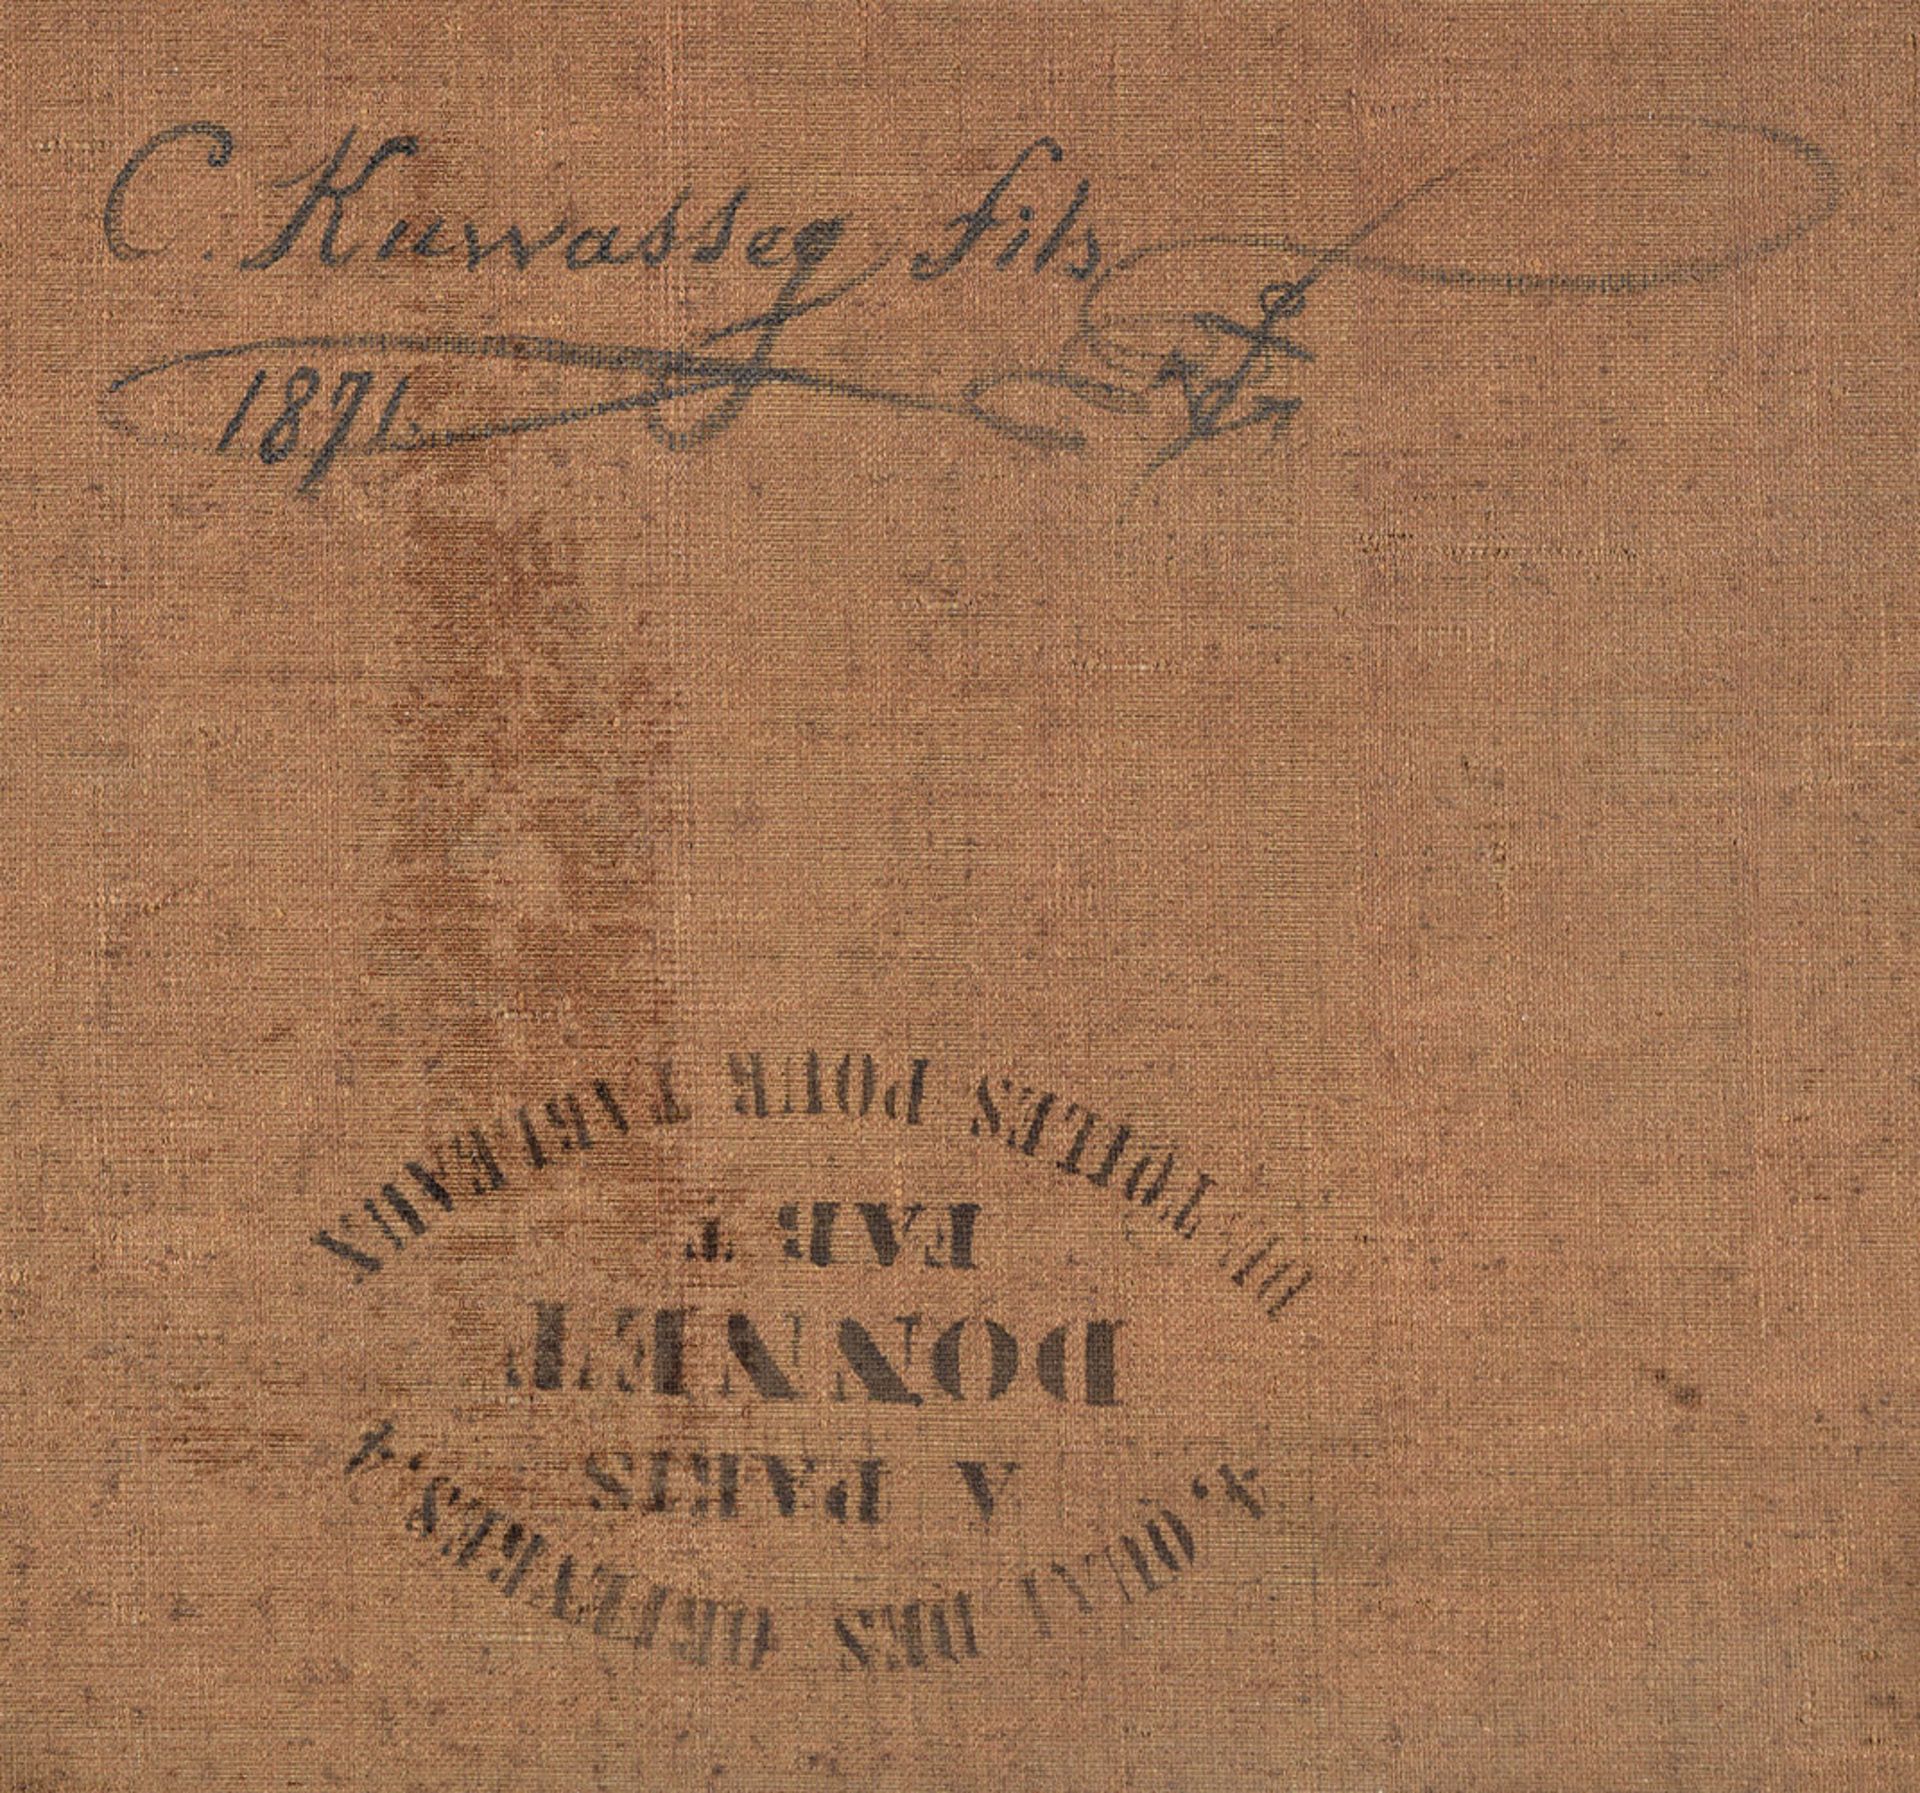 C. Kuwasseg fils
1871
DE TOILES POUR TABLEAUX
FAB T
DONNET
A PARIS
4. QUAI DES ORFEVRES. 4